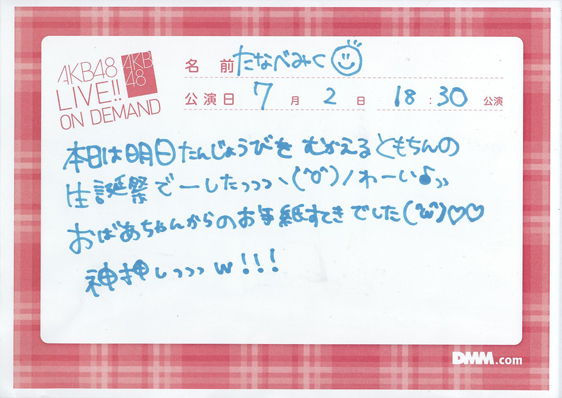 AKB48
LIVE!!
ON DEMAND
AKB
48
名前 たなべみく
公演日 7月2日 18:30公演
本日は明日たんじょうびを むかえるともちんの
生誕祭でーしたっっっヽ(^o^)ノわーい♪〃
おばあちゃんからのお手紙すてきでした(^ω^)♡♡
神押しっっっw!!!
DMM.com